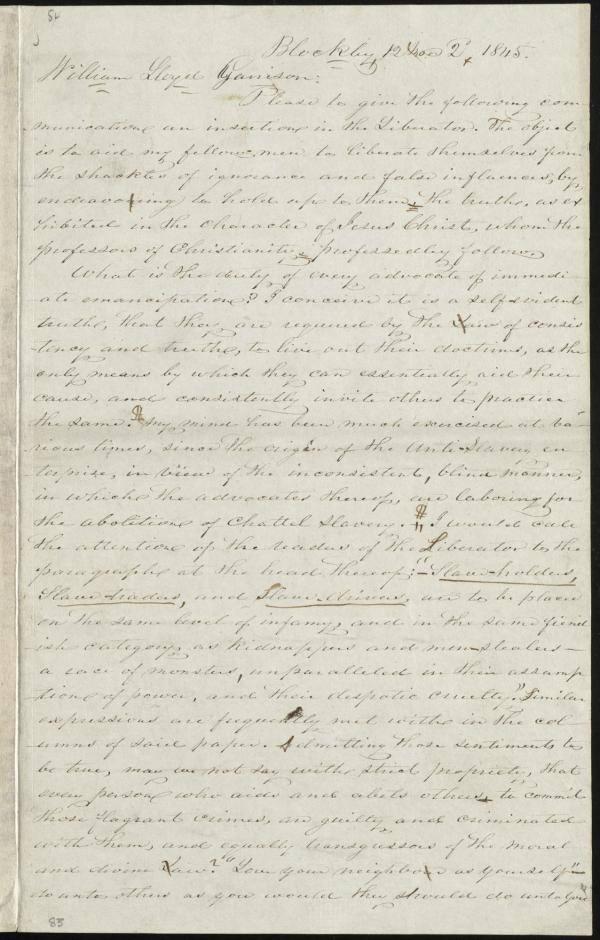 84
Blockley, 12 mo 2, 1845.
William Lloyd Garrison:
Please to give the following com-
munication an insertion in the Liberator. The object
is to aid my fellow men to liberate themselves from
the shackles of ignorance and false influences, by
endeavoring to hold up to them, the truth, as ex-
hibited in the character of Jesus Christ, whom the
professors of Christianity, professedly follow.
What is the duty of every advocate of immedi-
ate emancipation? I conceive it is a self-evident
truth, that they are required by the Law of consis-
tency and truth, to live out their doctrines, as the
only means by which they can essentially aid their
cause, and consistently invite others to practice
the same. My mind has been much exercised at va-
rious times, since the origin of the Anti-Slavery en-
terprise, in view of the inconsistent, blind manner,
in which the advocates thereof, are laboring for
the abolition of Chattel Slavery. I would call
the attention of the readers of the Liberator to the
paragraph at the head thereof; "Slave-holders,
Slave-traders, and Slave-drivers, are to be placed
on the same level of infamy, and in the same fiend-
ish category, as kidnappers and men-stealers—
a race of monsters, unparalleled in their assump-
tion of power, and their despotic cruelty." Similar
expressions are frequently met with in the col-
umns of said paper. Admitting those sentiments to
be true, may we not say with strict propriety, that
every person who aids and abets others, to commit
those flagrant crimes, are guilty and criminated
with them, and equally transgressors of the moral
and divine Law? "Love your neighbor as yourself"—
do unto others as you would they should do unto you"
83